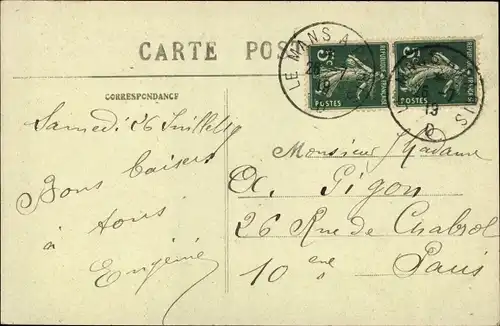 CARTE POS
LE MANS A
26 -7
19
5c
REPUBLIQUE FRANÇAISE
POSTES
5c
REPUBLIQUE FRANÇAISE
POSTES
26
19
CORRESPONDANCE
Samedi 26 Juillet 19
Bons baisers
à tous
Eugénie
Monsieur Madame
A. Pigon
26 Rue de Chabrol
10 eme
Paris